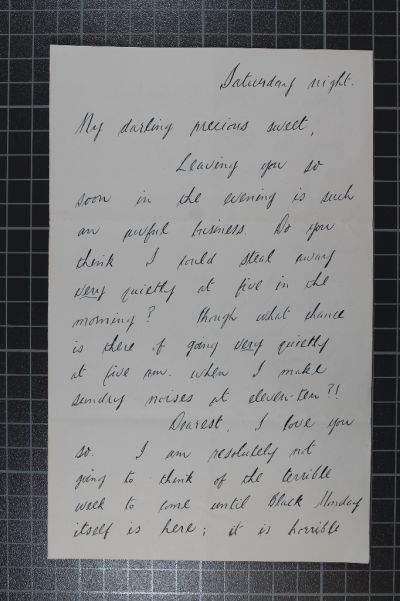 Saturday night.
My darling precious sweet,
Leaving you so
soon in the evening is such
an awful business. Do you
think I could steal away
very quietly at five in the
morning? Though what chance
is there of going very quietly
at five a.m. when I make
sundry noises at eleven-ten?!
Dearest, I love you
so. I am resolutely not
going to think of the terrible
week to come until Black Monday
itself is here; it is horrible